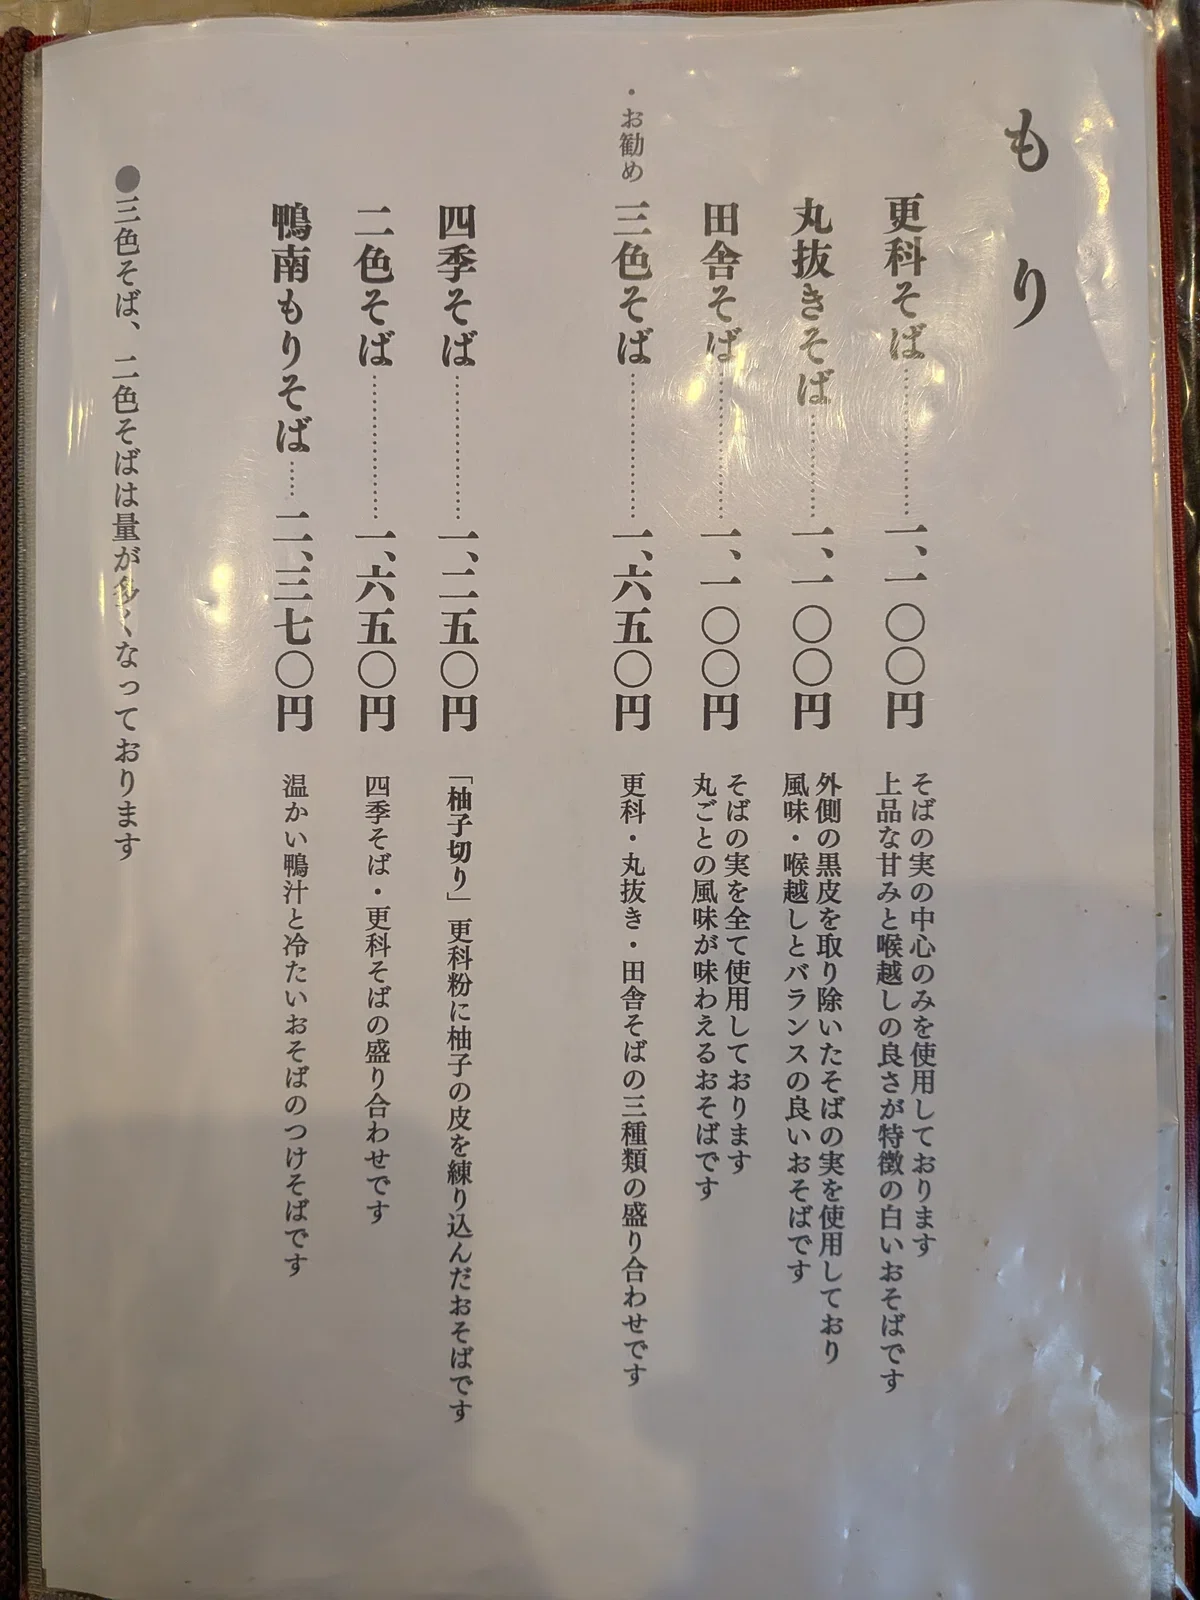 もり
更科そば…………一、一〇〇円
そばの実の中心のみを使用しております
上品な甘みと喉越しの良さが特徴の白いおそばです
丸抜きそば………一、一〇〇円
外側の黒皮を取り除いたそばの実を使用しており
風味・喉越しとバランスの良いおそばです
田舎そば…………一、一〇〇円
そばの実を全て使用しております
丸ごとの風味が味わえるおそばです
・お勧め 三色そば…………一、六五〇円
更科・丸抜き・田舎そばの三種類の盛り合わせです
四季そば…………一、二五〇円
「柚子切り」更科粉に柚子の皮を練り込んだおそばです
二色そば…………一、六五〇円
四季そば・更科そばの盛り合わせです
鴨南もりそば……二、三七〇円
温かい鴨汁と冷たいおそばのつけそばです
●三色そば、二色そばは量が多くなっております